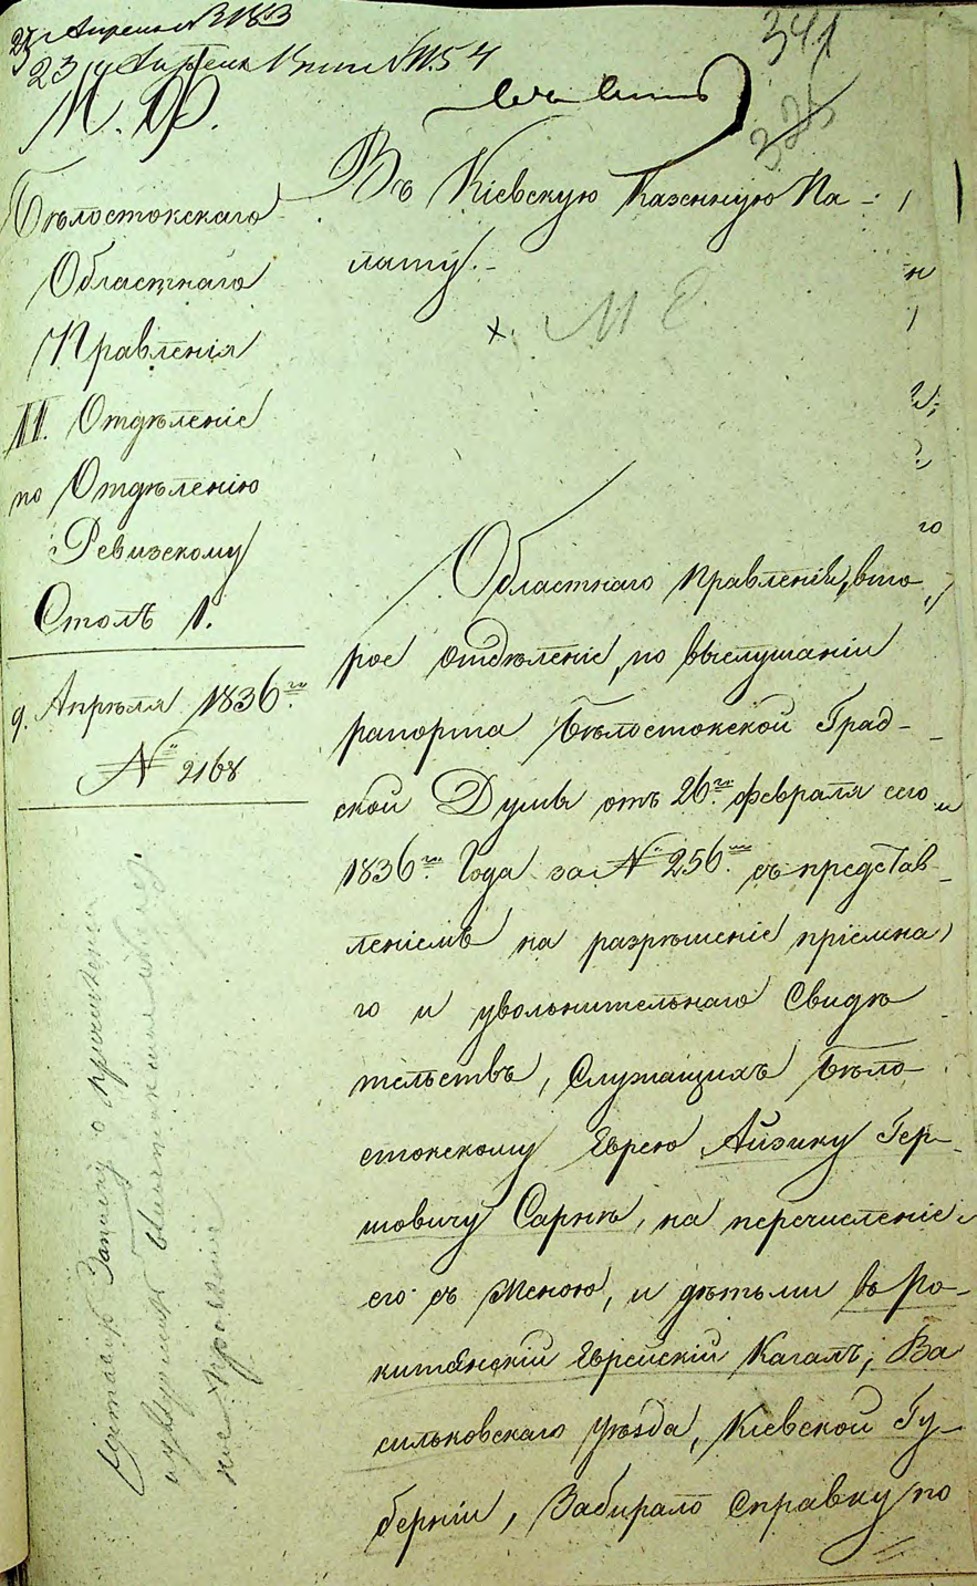 341
М. Ф.
Бѣлостокскаго
Областнаго
Правленія
II. Отдѣленіе
по Отдѣленію
Ревизскому
Столъ 1.
9. Апрѣля 1836го.
№ 2168
Въ Кіевскую Казенную Па-
лату.-
Областнаго Правленія, вто-
рое отдѣленіе, по выслушаніи
рапорта Бѣлостокской Град-
ской Думы отъ 26го. февраля сего
1836го. Года за № 256м. съ представ-
леніемъ на разрѣшеніе пріемна-
го и увольнительнаго Свидѣ
тельствъ, Служащихъ Бѣло-
стокскому Еврею Айзику Гер-
шовичу Сарнѣ, на перечисленіе
его съ женою, и дѣтьми въ Ро-
китянскій Еврейскій Кагалъ, Ва
сильковскаго уѣзда, Кіевской Гу-
берніи, Забирало Справку по